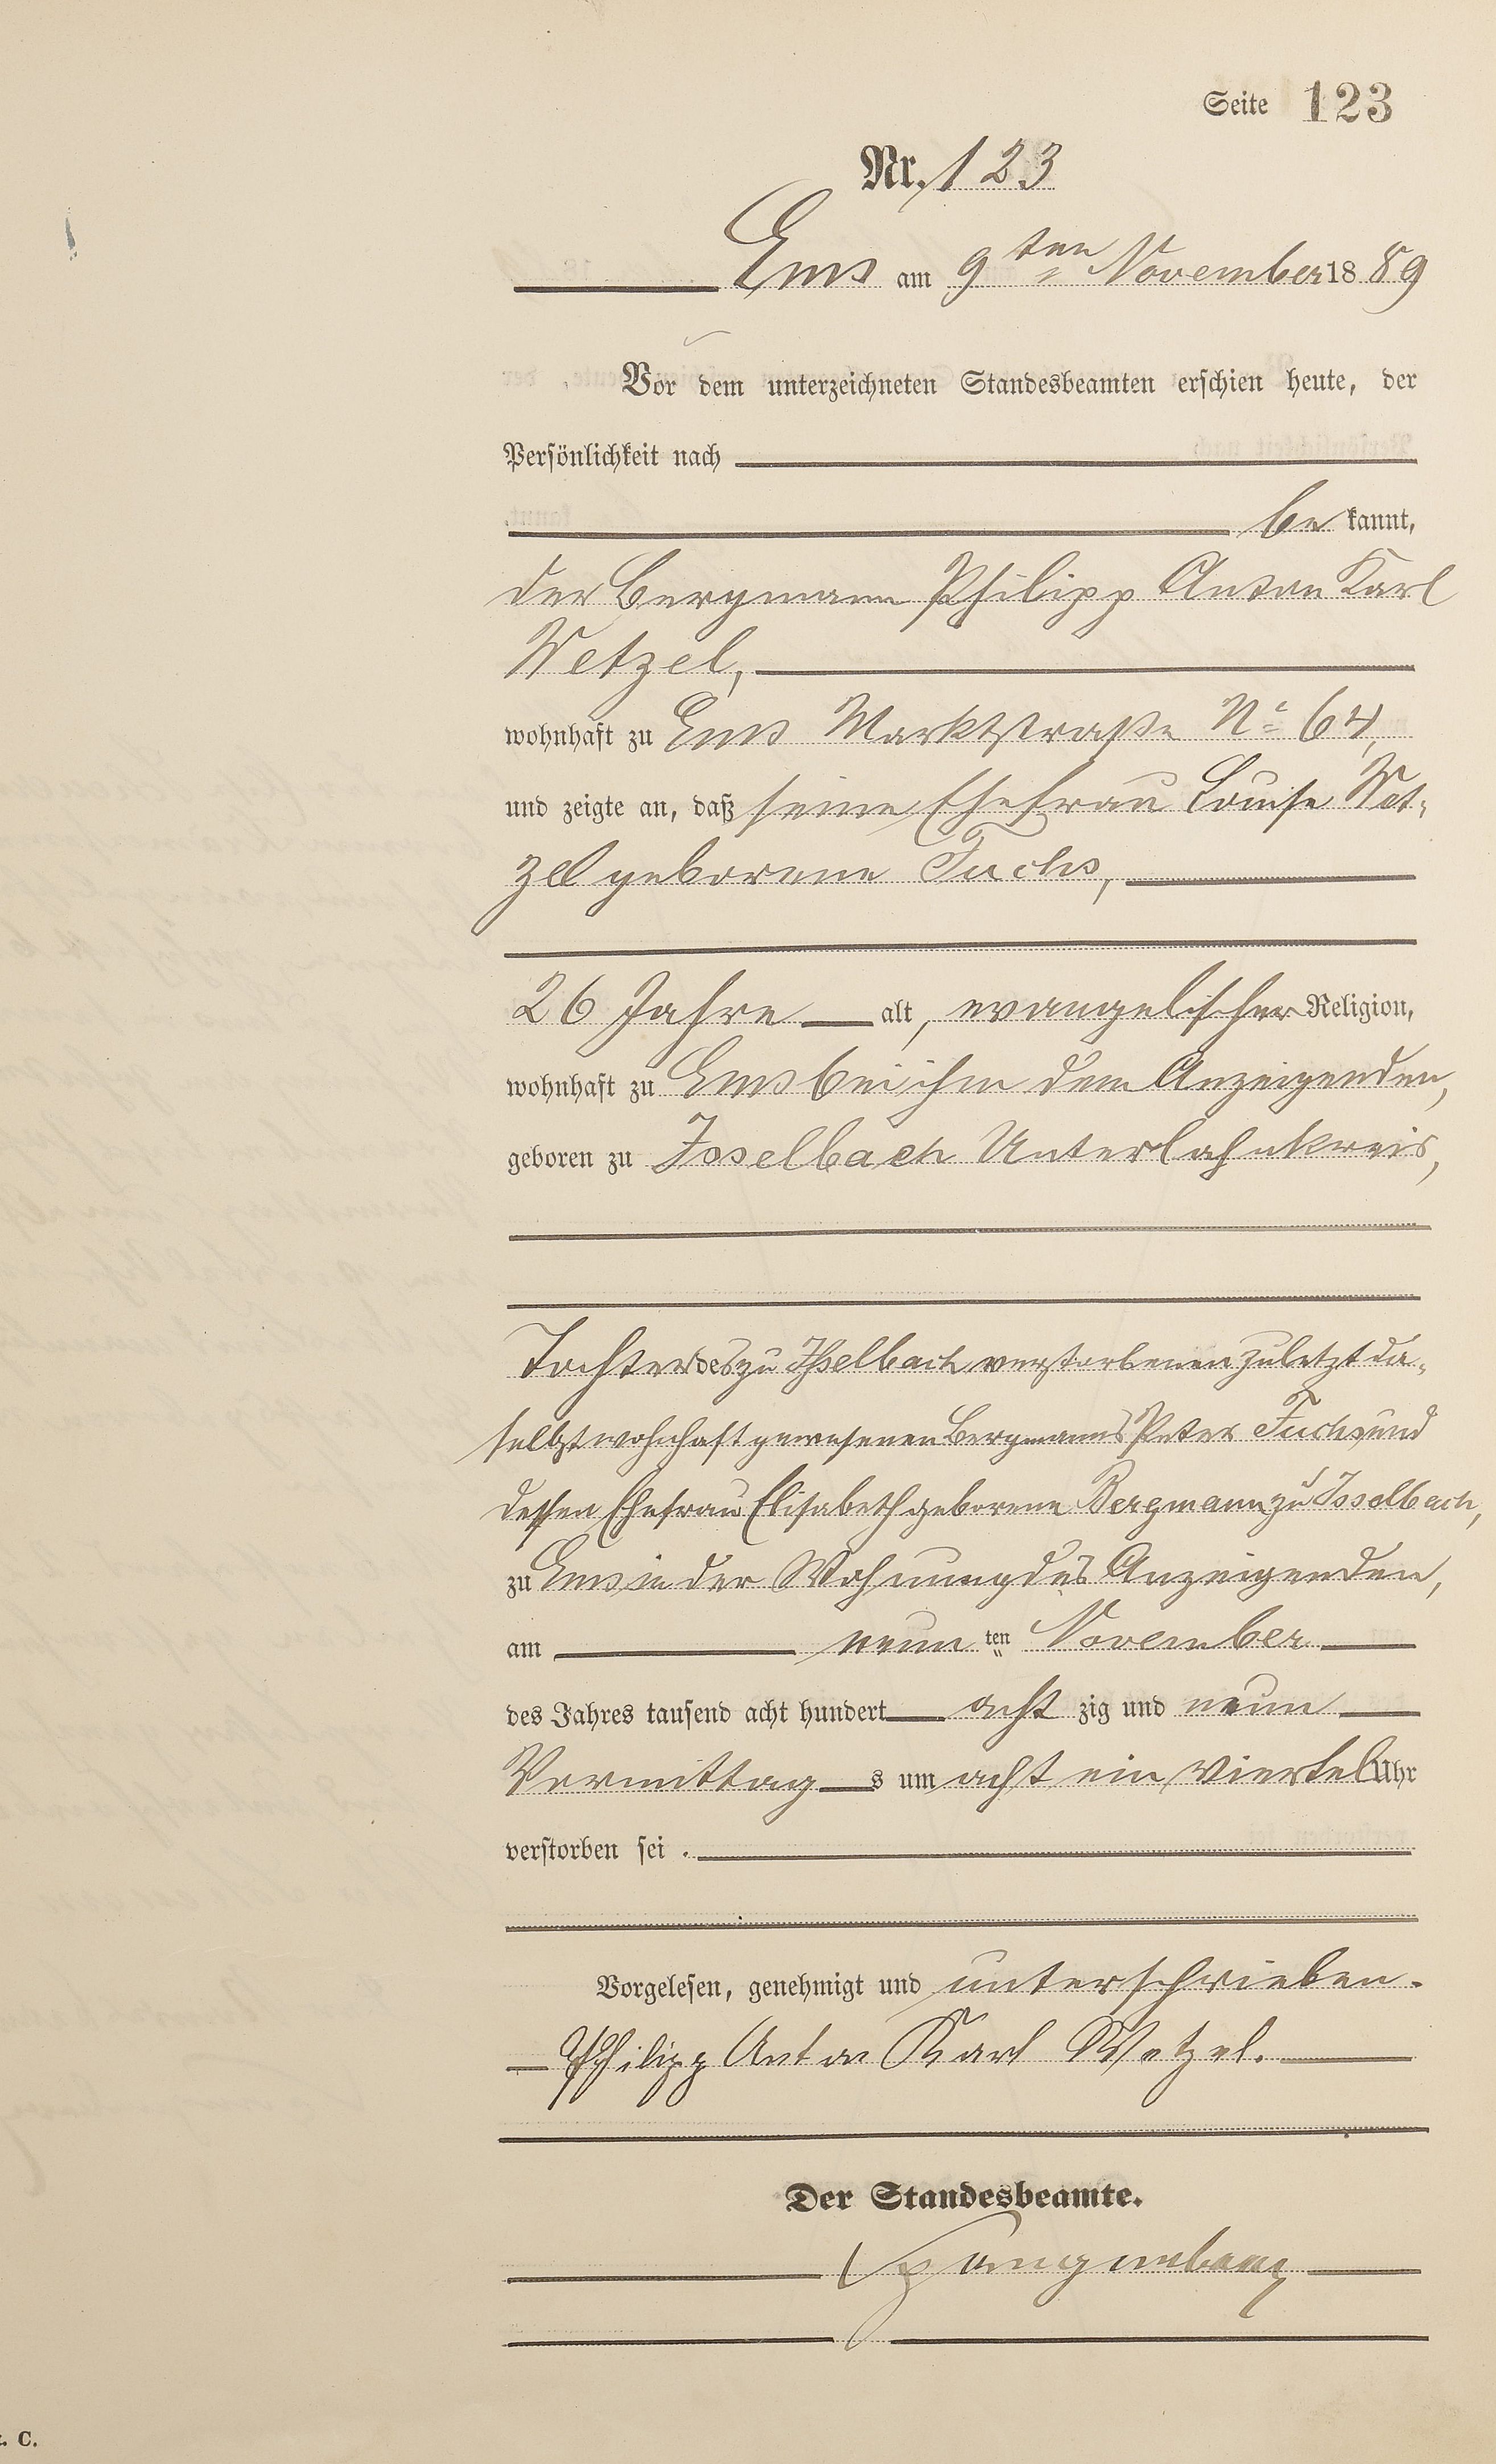 Seite 123
Nr. 123
Ems am 9ten November 1889
Vor dem unterzeichneten Standesbeamten erschien heute, der
Persönlichkeit nach
be kannt,
der Bergmann Philipp Anton Karl
Wetzel,
wohnhaft zu Ems Marktstraße No 64,
und zeigte an, daß seine Ehefrau Louise Wet-
zel geborene Fuchs,
26 Jahre alt, evangelischer Religion,
wohnhaft zu Ems bei ihm dem Anzeigenden,
geboren zu Isselbach Unterlahnkreis,
Tochter des zu Isselbach verstorbenen zuletzt da-
selbst wohnhaft gewesenen Bergmanns Peter Fuchs und
dessen Ehefrau Elisabeth geborene Bergmann zu Isselbach,
zu Ems in der Wohnung des Anzeigenden,
am neun ten November
des Jahres tausend acht hundert acht zig und neun
Vormittag s um acht ein viertel Uhr
verstorben sei.
Vorgelesen, genehmigt und unterschrieben.
Philipp Anton Karl Wetzel.
Der Standesbeamte.
. C.